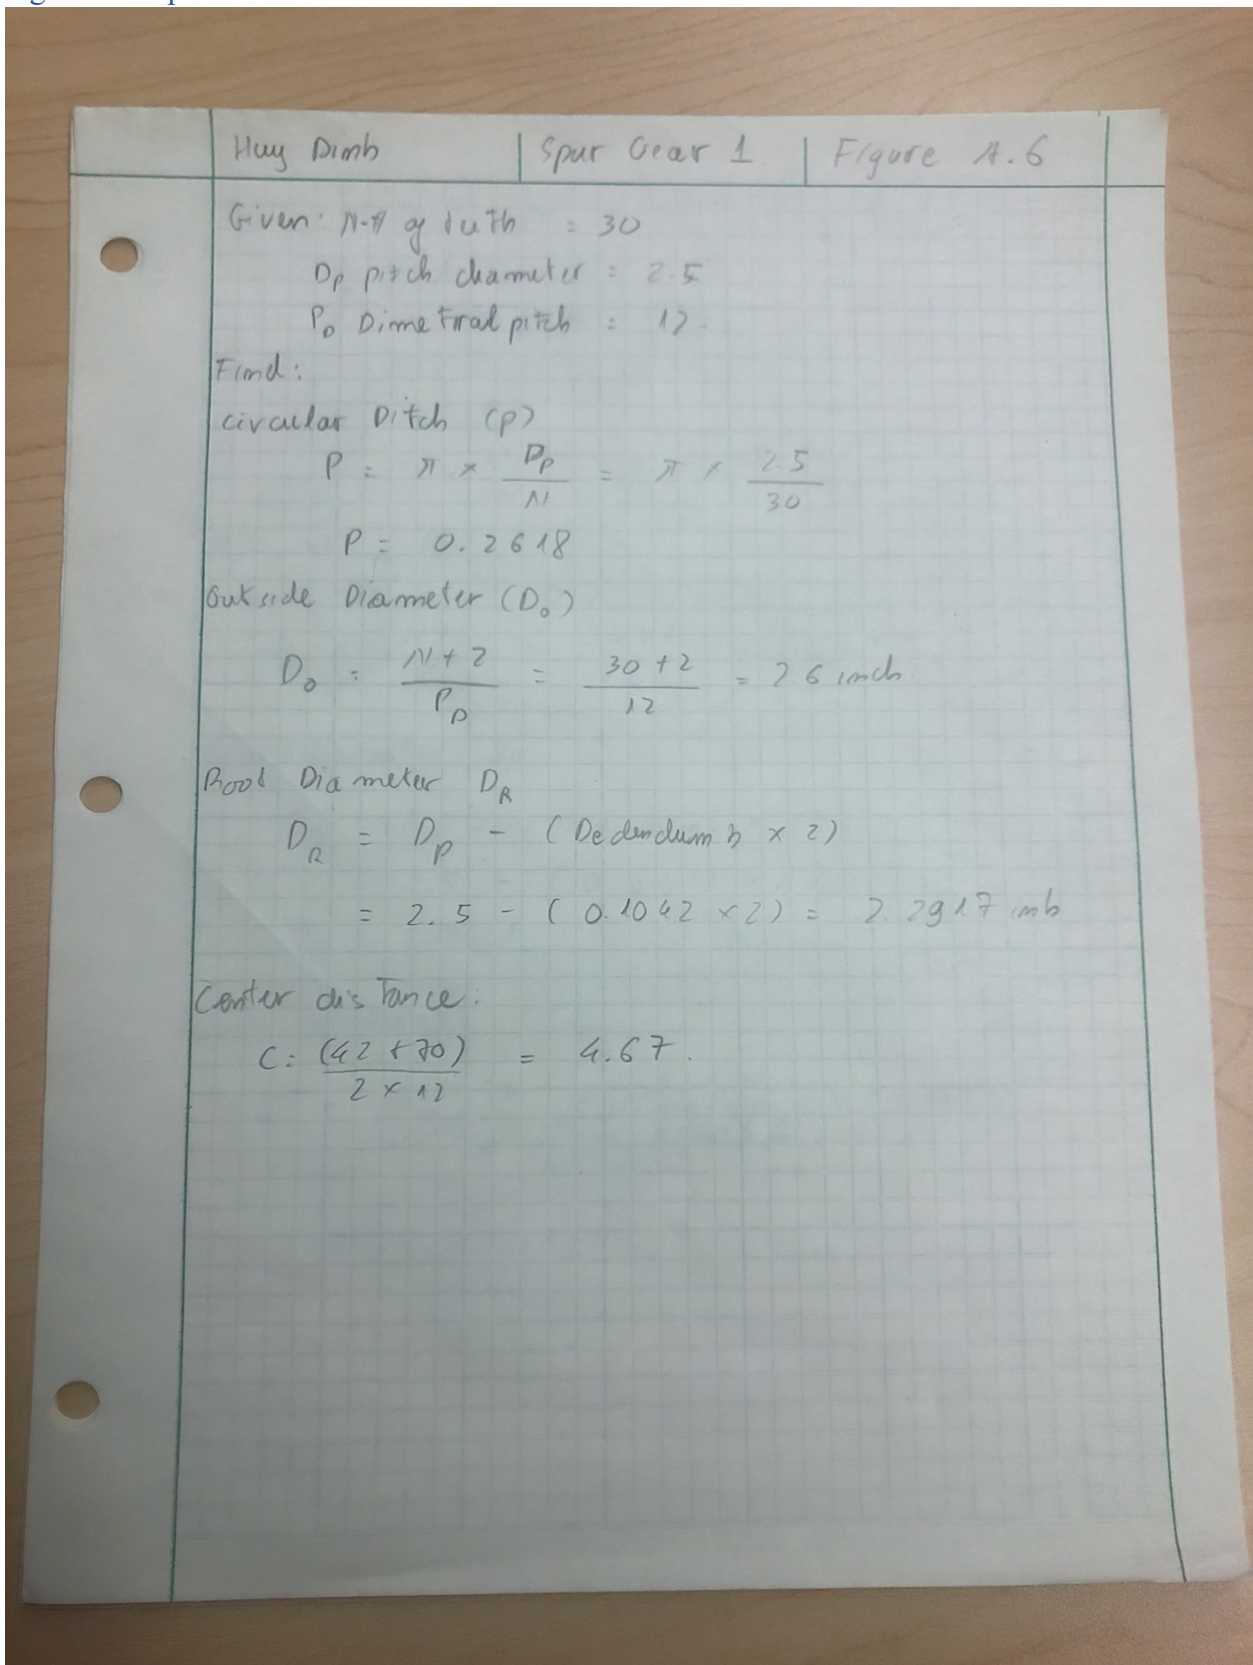 Huy Dinh | Spur Gear 1 | Figure A.6
Given: N-# of tuth = 30
Dp pitch diameter = 2.5
PD Dimetiral pitch = 12.
Find:
circular Pitch (p)
P = π × Dp/N = π × 2.5/30
P = 0.2618
Outside Diameter (Do)
Do = N+2/PD = 30+2/12 = 2.6 inch
Root Diameter DR
DR = Dp - (Dedendum b × 2)
= 2.5 - (0.1042 × 2) = 2.2917 inh
Center distance:
C = (42+70)/2×12 = 4.67.